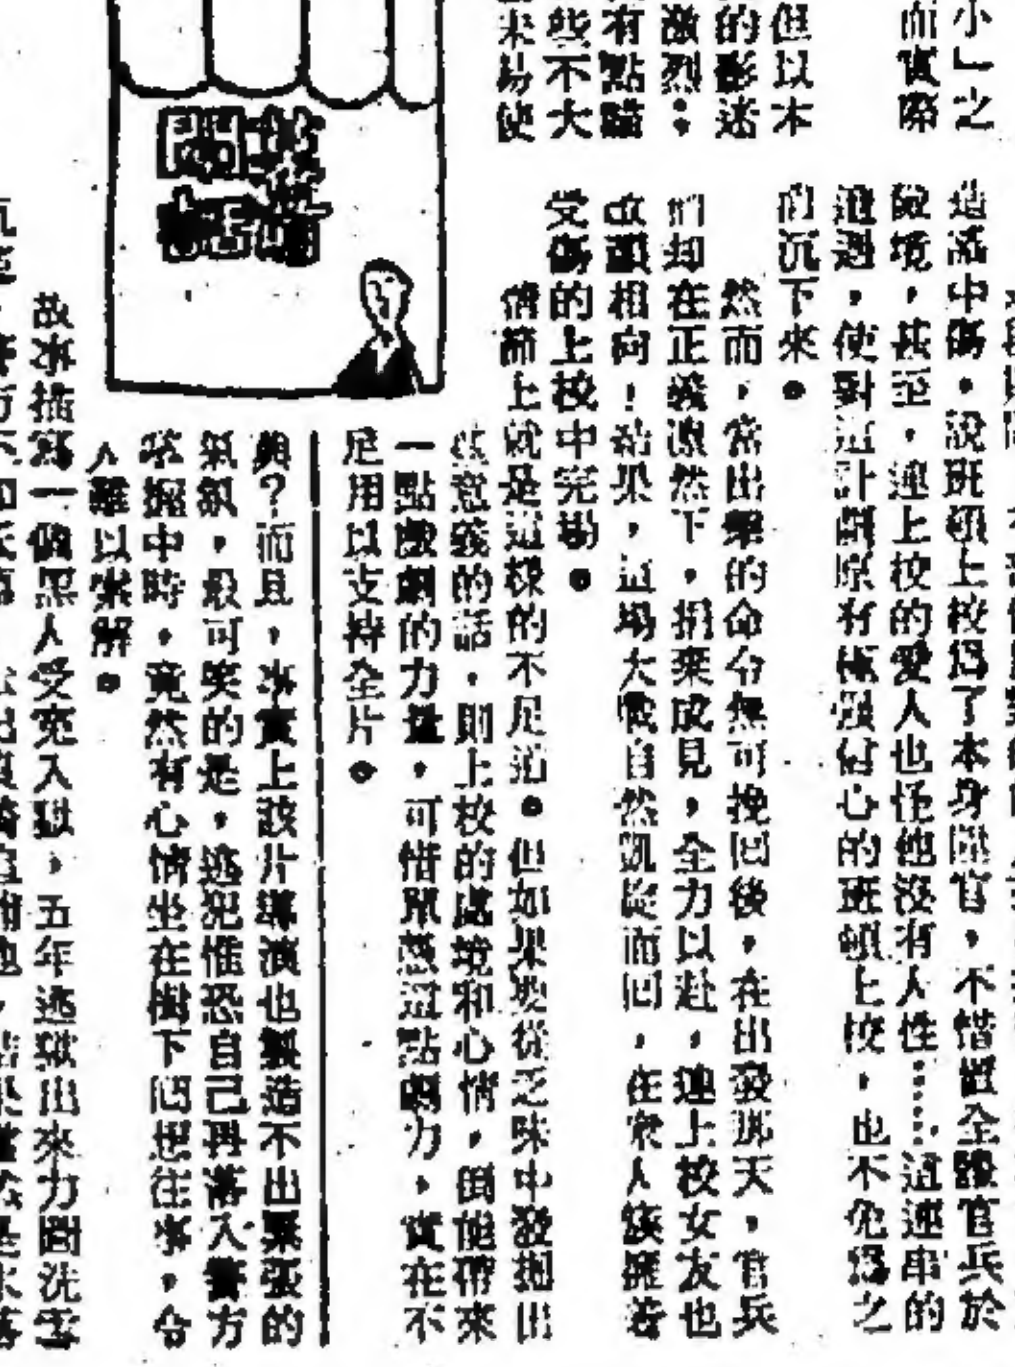 小」之
而實際
但以本
的影迷
激烈；
有點瞄
些不大
未易使
造謠中傷，說班頓上校爲了本身陞官，不惜置全體官兵於
險境，甚至，連上校的愛人也怪他沒有人性……這連串的
遭遇，使對這計劃原有極强信心的班頓上校，也不免爲之
們沉下來。
然而，當出擊的命令無可挽回後，在出發那天，官兵
們却在正義凛然下，捐棄成見，全力以赴，連上校女友也
改顏相向！結果，這場大戰自然凱旋而回，在衆人簇擁着
受傷的上校中完場。
情節上就是這樣的不足道。但如果要從乏味中發掘出
些意義的話，則上校的處境和心情，倒能帶來
一點戲劇的力量，可惜單憑這點劇力，實在不
足用以支持全片。
與？而且，事實上該片導演也製造不出緊張的
氣氛，最可笑的是，逃犯惟恐自己再落入警方
掌握中時，竟然有心情坐在樹下回想往事，令
人難以索解。
故事描寫一個黑人受寃入獄，五年逃獄出來力圖洗雪